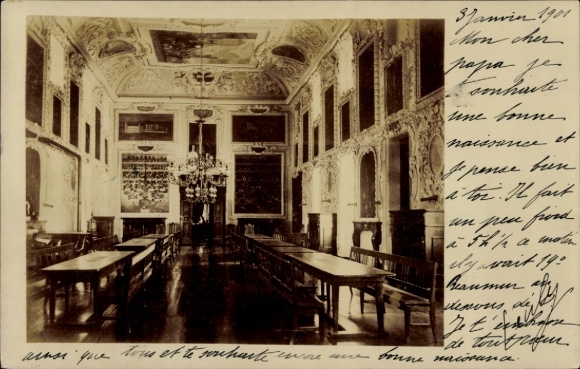 3 Janvier 1901
Mon cher
papa je
te souhaite
une bonne
naissance et
je pense bien
à toi. Il fait
un peu froid
à 5 h ½ ce matin
il y avait 19°
Reaumur au
dessous de
Je t'embrasse
de tout cœur
ainsi que tous et te souhaite encore une bonne naissance.